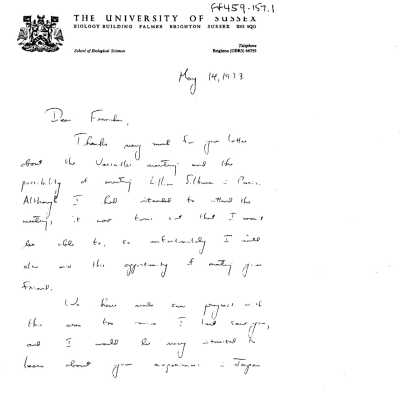 FF459.157.1
THE UNIVERSITY OF SUSSEX
BIOLOGY BUILDING FALMER BRIGHTON SUSSEX BN1 9QG
School of Biological Sciences
Telephone
Brighton (OBR3) 66755
May 14, 1973
Dear
Thanks very much for your letter
about the Versailles meeting and the
possibility of meeting in Paris.
Although I had intended to attend the
meeting, it now turns out that I won't
be able to, so unfortunately I will
also miss this opportunity of meeting your
friend.
We have made some progress with
this since I last saw you,
and I would be very interested to
learn about your experiences in Japan